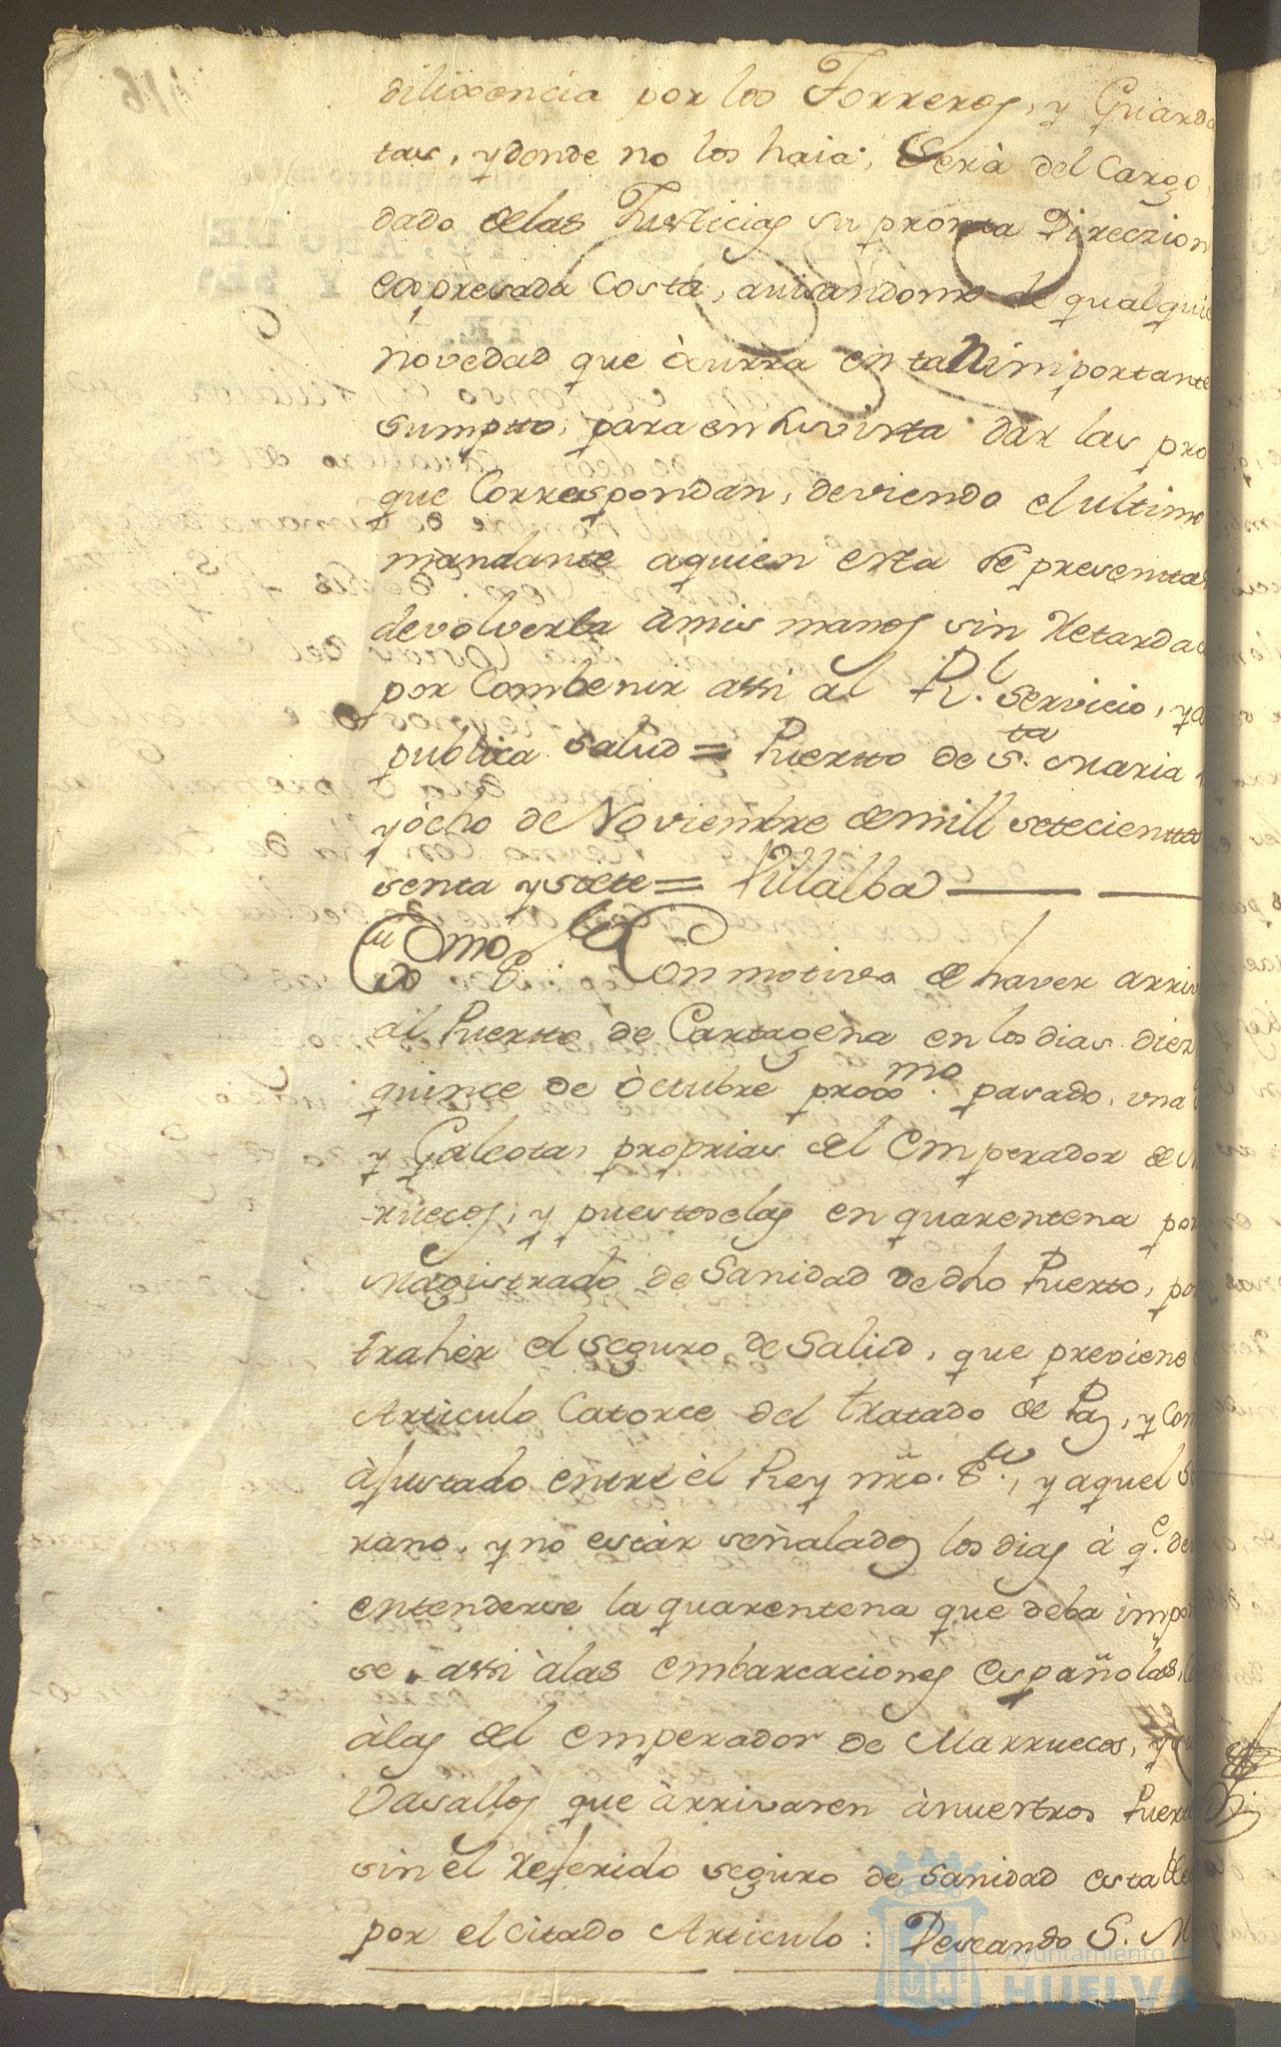 dilixencia por los Torreros, y Guarda
tas, y donde no los haia, Será del Cargo,
dado delas Justicias su pronta Direczion
expresada Costa, auisandome de qualquie
novedad que òcurra en tan importante
sumptto, para en su vista dar las pro
que Correspondan, deviendo el ultimo
mandante aquien esta se presentta
devolverla àmis manos sin Retardac
por Combenir assi al Rl. servicio, y a
publica salud = Puertto de S.ta Maria
y òcho de Noviembre demill setecienttos
senta y siete = Villalba
Exmo S.r Con motivo de haver arriv
al Puertto de Cartagena en los dias diez
quince de òctubre proximo pasado, una
y Galeotas proprias del Emperador de M
rruecos, y puestoselas en quarentena por
Magistrado de Sanidad de dho Puerto, po
traher el seguro de Salud, que previene
Articulo Catorce del tratado de Paz, y Com
àjustado entre èl Rey nro. S.or, y aquel So
rano, y no estàr señalados los dias à q.e de
entenderse la quarentena que deba impo
se, assi àlas embarcaciones españolas,
àlas del emperador de Marruecos, y su
Vasallos que àrrivaren ànuestros Puert
sin el Referido seguro de Sanidad estable
por el citado Articulo: Deseando S. M
Ayuntamiento de
HUELVA